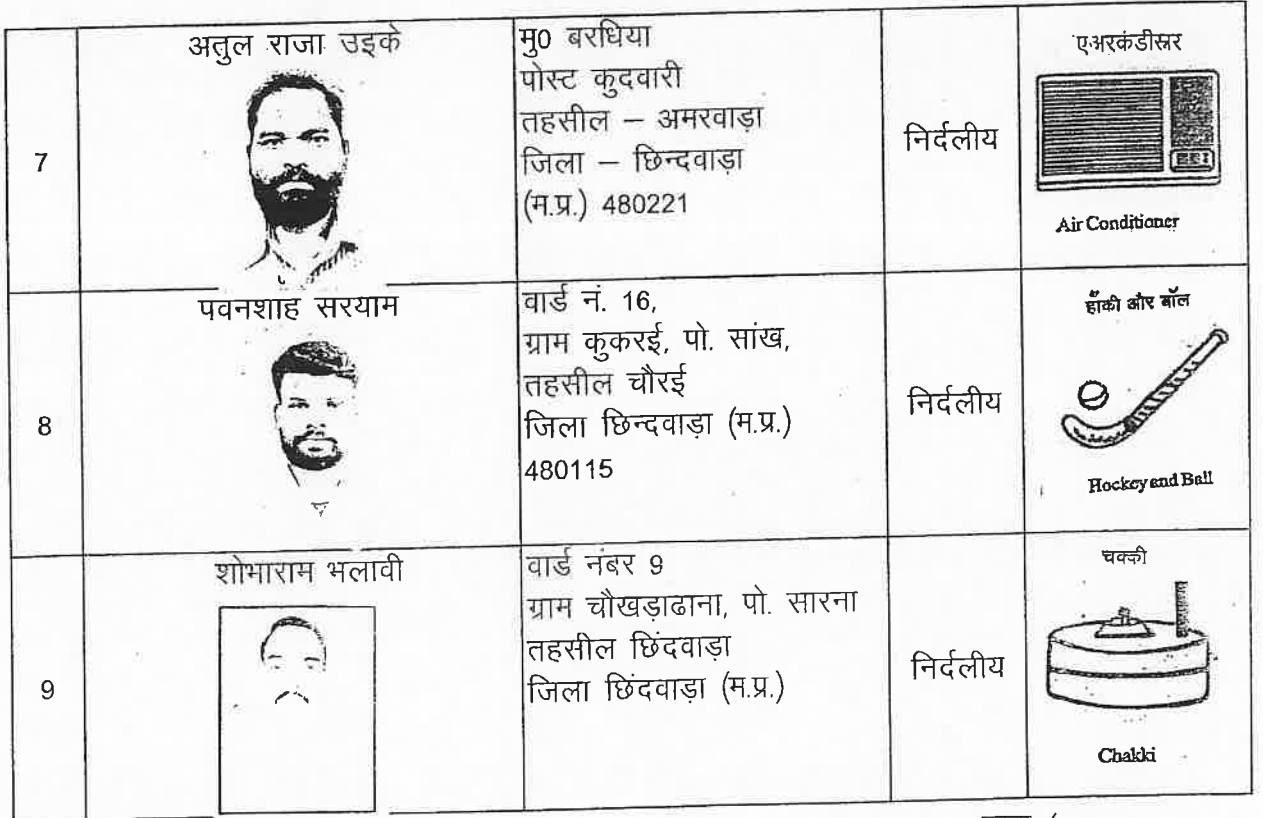 7
अतुल राजा उइके
मु0 बरधिया
पोस्ट कुदवारी
तहसील – अमरवाड़ा
जिला – छिन्दवाड़ा
(म.प्र.) 480221
निर्दलीय
एअरकंडीस्नर
Air Conditioner
8
पवनशाह सरयाम
वार्ड नं. 16,
ग्राम कुकरई, पो. सांख,
तहसील चौरई
जिला छिन्दवाड़ा (म.प्र.)
480115
निर्दलीय
हॉकी और बॉल
Hockey and Ball
9
शोभाराम भलावी
वार्ड नंबर 9
ग्राम चौखड़ाढाना, पो. सारना
तहसील छिंदवाड़ा
जिला छिंदवाड़ा (म.प्र.)
निर्दलीय
चक्की
Chakki